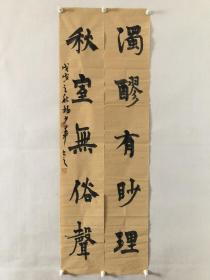 濁醪有眇理
秋室無俗聲